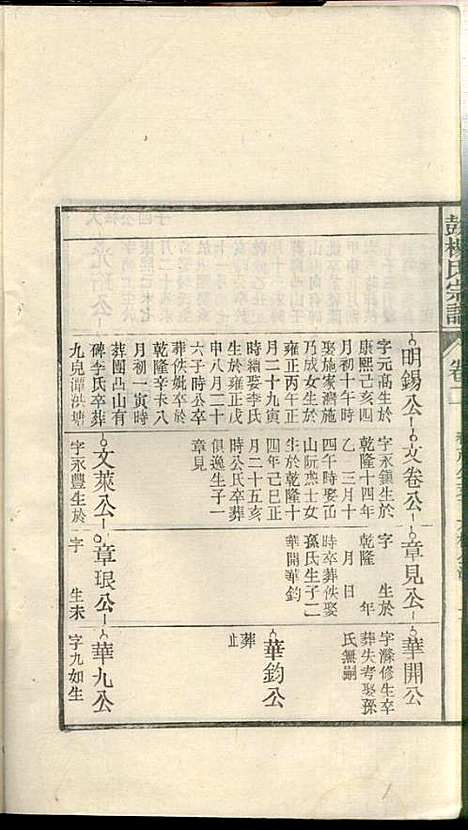 楊氏宗譜
卷一
明錫公
字元高生於
康熙己亥四
月初十午時
娶施家灣施
乃成女生於
雍正丙午正
月二十九寅
時續娶李氏
生於雍正戊
申八月二十
六子時公卒
葬佚妣卒於
乾隆辛卯八
月初一寅時
葬團凸山有
碑李氏卒葬
九皃潭洪塘
文卷公
字永鎮生於
乾隆十四年
乙 三月十
四午時娶凸
山阮燕士女
生於乾隆十
四年己巳正
月二十五亥
時公氏卒葬
俱逸生子一
章見
文萊公
字永豐生於
章見公
字 生於
乾隆 年
月 日
時卒葬佚娶
孫氏生子二
華開華鈞
章珢公
字 生未
華開公
字滌修生卒
葬失考娶孫
氏無嗣
華鈞公
葬
止
華九公
字九如生